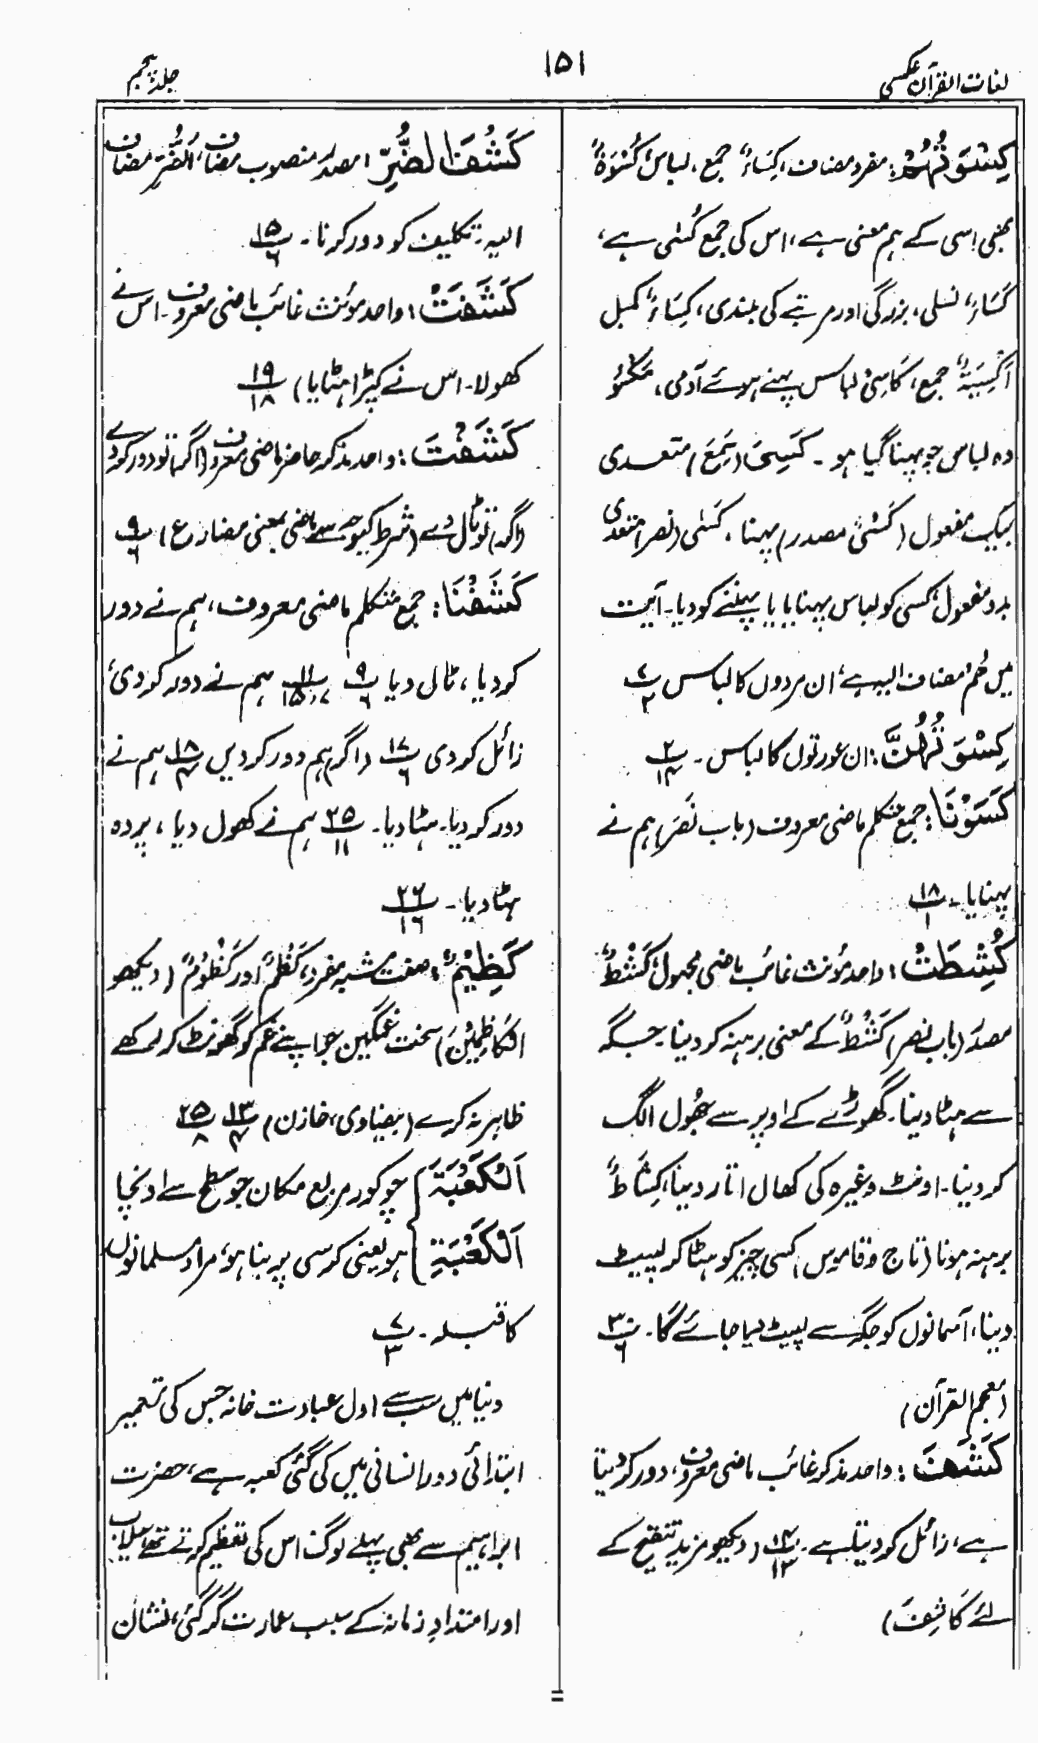 لغات القرآن عکسی
۱۵۱
جلد پنجم
کِسْوَتُہُمْ: مفرد مضاف، کِسَاءٌ جمع، لباس کُسْوَۃٌ
بھی اسی کے ہم معنی ہے، اس کی جمع کُسٰی ہے،
کَسَاءٌ نسلی، بزرگی اور مرتبے کی بلندی، کِسَاءٌ کمبل
اَکْسِیَۃٌ جمع، کَاسِیْ لباس پہنے ہوئے آدمی، مَکْسُوٌّ
وہ لباس جو پہنا گیا ہو۔ کَسِیَ (سَمِعَ) متعدی
بیک مفعول (کَسْیٌ مصدر) پہنا، کَسٰی (نصر) متعدی
بدو مفعول کسی کو لباس پہنایا یا پہننے کو دیا۔ آیت
میں ھُمْ مضاف الیہ ہے، ان مردوں کا لباس ۷/۲
کِسْوَتُہُنَّ: ان عورتوں کا لباس۔ ۲/۱۴
کَسَوْنَا: جمع متکلم ماضی معروف (باب نَصَرَ) ہم نے
پہنایا۔ ۱۸/۱
کُشِطَتْ: واحد مؤنث غائب ماضی مجہول، کَشْطٌ
مصدر (باب نصر) کَشْطٌ کے معنی برہنہ کر دینا۔ جگہ
سے ہٹا دینا۔ گھوڑے کے اوپر سے جھول الگ
کر دینا۔ اونٹ وغیرہ کی کھال اتار دینا، کِشَاطٌ
برہنہ ہونا (تاج و قاموس) کسی چیز کو ہٹا کر لپیٹ
دینا، آسمانوں کو جگہ سے لپیٹ لیا جائے گا۔ ۳۰/۶
(معجم القرآن)
کَشَفَ: واحد مذکر غائب ماضی معروف، دور کر دیتا
ہے، زائل کر دیتا ہے۔ ۱۴/۱۳ (دیکھو مزید تنقیح کے
لئے کَاشِفَ)
کَشْفَ الضُّرِّ: مصدر منصوب مضاف، اَلضُّرِّ مضاف
الیہ، تکلیف کو دور کرنا۔ ۱۵/۶
کَشَفَتْ: واحد مؤنث غائب ماضی معروف۔ اس نے
کھولا۔ اس نے کپڑا ہٹایا) ۱۹/۱۸
کَشَفْتَ: واحد مذکر حاضر ماضی معروف (اگر) تو دور کر دے
(اگر) تو ٹال دے (شرط کیوجہ سے ماضی بمعنی مضارع) ۹/۶
کَشَفْنَا: جمع متکلم ماضی معروف، ہم نے دور
کر دیا، ٹال دیا ۹/۶ ۱۱/۱۵،۷ ہم نے دور کر دی،
زائل کر دی ۱۷/۶ (اگر) ہم دور کر دیں ۱۸/۴ ہم نے
دور کر دیا۔ ہٹا دیا۔ ۲۵/۱۱ ہم نے کھول دیا، پردہ
ہٹا دیا۔ ۲۶/۱۶
کَظِیْمٌ: صفت مشبہ مفرد، کَظْمٌ اور کَظُوْمٌ (دیکھو
الْکَاظِمِیْنَ) سخت غمگین جو اپنے غم کو گھونٹ کر رکھے
ظاہر نہ کرے (بیضاوی، خازن) ۱۳/۴ ۲۵/۸
اَلْکَعْبَۃَ } چوکور مربع مکان جو سطح سے اونچا
اَلْکَعْبَۃِ } ہو یعنی کرسی پر بنا ہو، مراد مسلمانوں
کا قبلہ۔ ۷/۳
دنیا میں سب سے اول عبادت خانہ جس کی تعمیر
ابتدائی دور انسانی میں کی گئی کعبہ ہے، حضرت
ابراہیم سے بھی پہلے لوگ اس کی تعظیم کرتے تھے، سیلاب
اور امتدادِ زمانہ کے سبب عمارت گر گئی، نشان